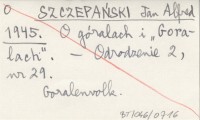 O SZCZEPAŃSKI Jan Alfred
1945. O góralach i „Gora-
lach". — Odrodzenie 2,
nr 29.
Goralenvolk.
BT/046/0716